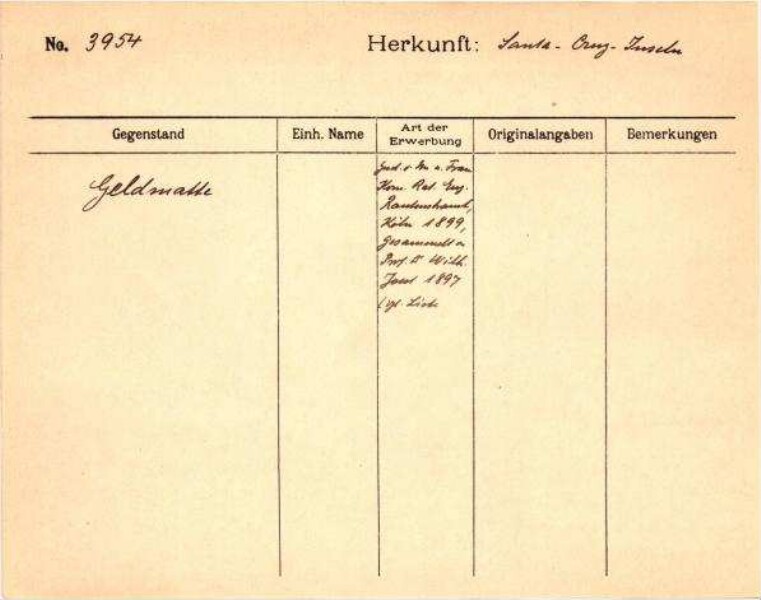 No. 3954
Herkunft: Santa-Cruz-Inseln
Gegenstand
Einh. Name
Art der
Erwerbung
Originalangaben
Bemerkungen
Geldmatte
Frau
Kom. Rat. Eug.
Rautenstrauch,
Köln 1899,
Gesammelt v.
Prof. Dr Wilh.
Joest 1897
Liste